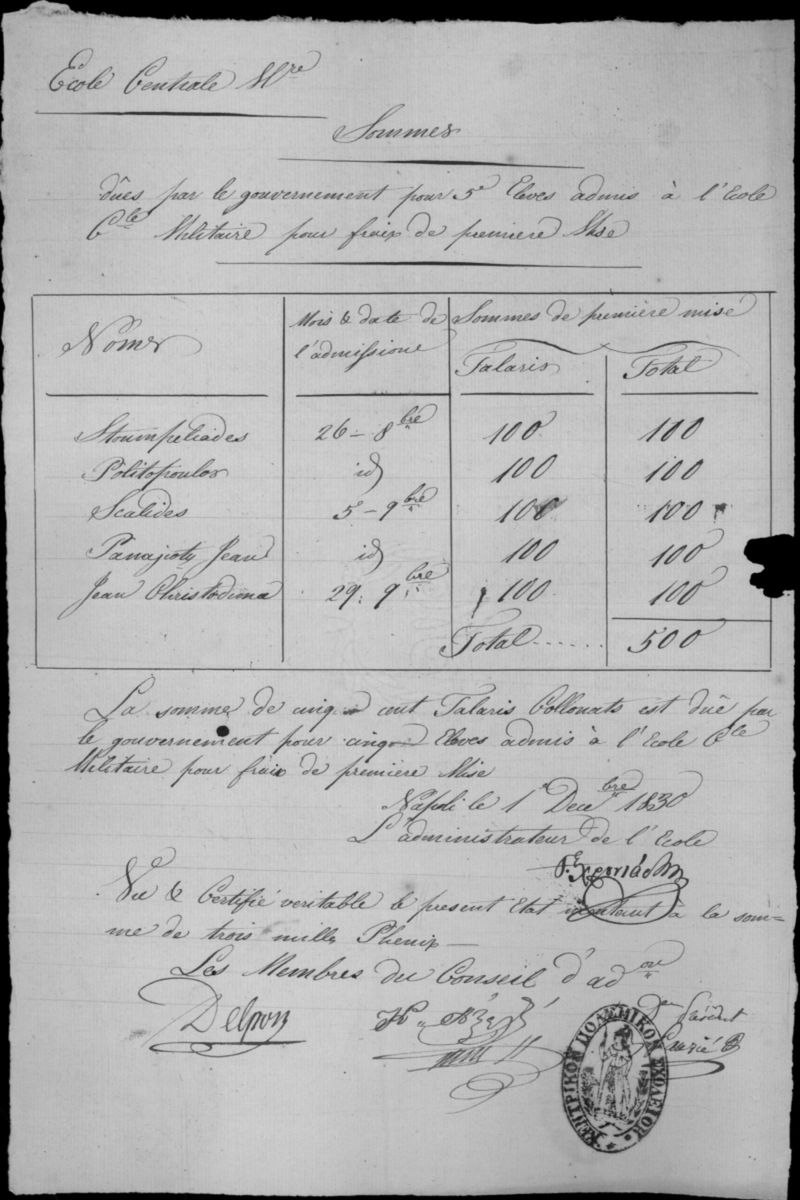 École Centrale Mre
Sommes
dûes par le gouvernement pour 5e Eleves admis à l'Ecole
Cle Militaire pour fraix de premiere Mise
Noms
Mois & date de l'admissione
Sommes de première mise
Talaris
Total
Stoumpeliades 26 - 8bre 100 100
Politopoulos id 100 100
Scalides 5 - 9bre 100 100
Panajoty Jean id 100 100
Jean Christodima 29, 9bre 100 100
Total...... 500
La somme de cinq cent Talaris Collonats est dûe par
le gouvernement pour cinq Eleves admis à l'Ecole Cle
Militaire pour fraix de première Mise
Napoli le 1r Decebre 1830
L'administrateur de l'Ecole
Vu & Certifié veritable le present Etat montant à la som=
me de trois mille Phenix —
Les Membres du Conseil d'adon
Delpon
ΚΕΝΤΡΙΚΟΝ ΠΟΛΕΜΙΚΟΝ ΣΧΟΛΕΙΟΝ